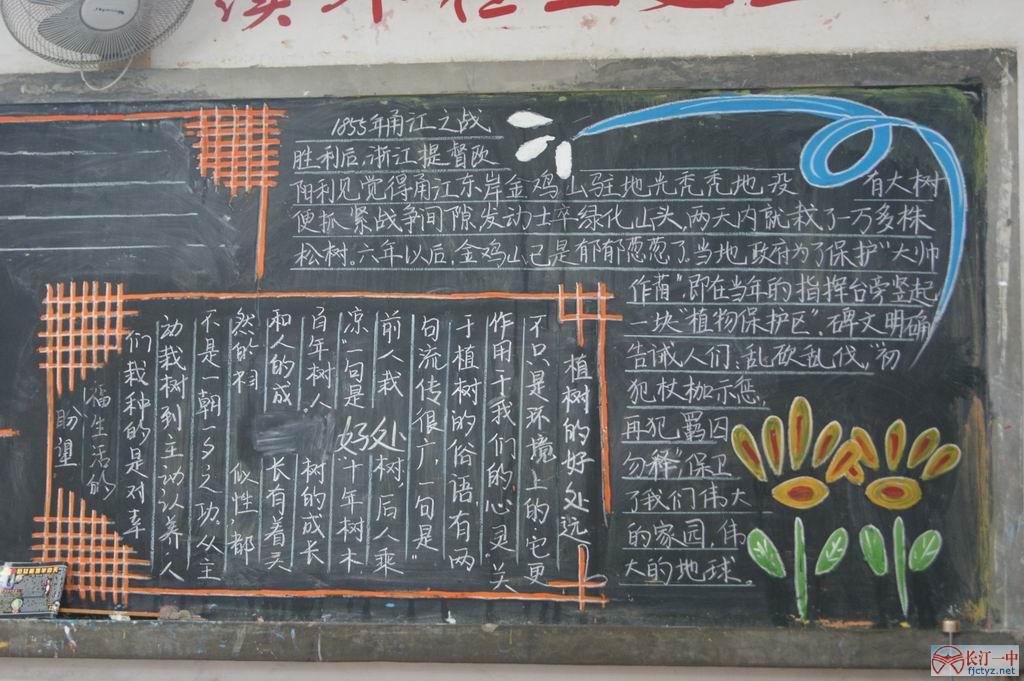 1855年甬江之战
胜利后,浙江提督欧
阳利见觉得甬江东岸金鸡山驻地光秃秃地没有大树
便抓紧战争间隙,发动士卒绿化山头,两天内就栽了一万多株
松树。六年以后,金鸡山已是郁郁葱葱了。当地政府为了保护"大帅
作荫",即在当年的指挥台旁竖起
一块"植物保护区",碑文明确
告诫人们:乱砍乱伐,"初
犯杖枷示惩,
再犯羁囚
勿释"保卫
了我们伟大
的家园,伟
大的地球。
植树的好处远
不只是环境上的它更
作用于我们的心灵"关
于植树的俗语有两
句流传很广,一句是"
前人栽树,后人乘
凉"一句是"十年树木
百年树人"树的成长
和人的成长有着天
然的相似性,都
不是一朝一夕之功.从主
动栽树到主动认养人
们栽种的是对幸
福生活的
盼望
好处
长汀一中
fjctyz.net